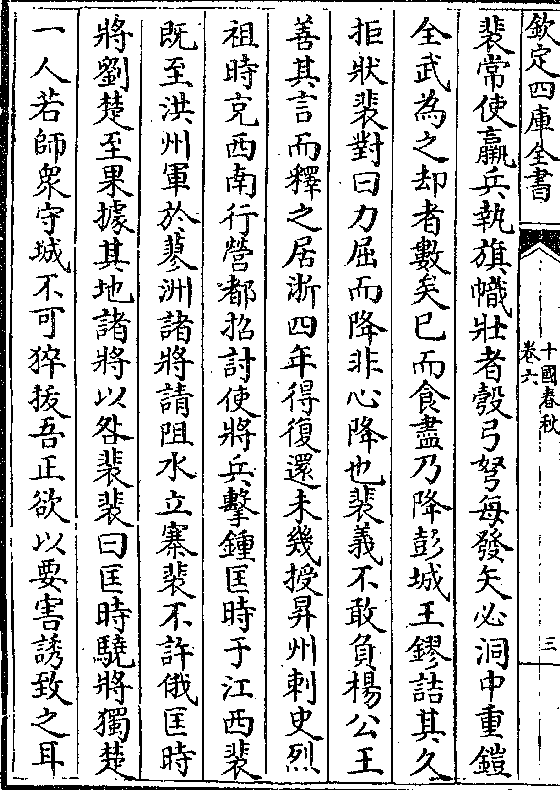 欽定四庫全書
十國春秋
卷六
三
裴常使羸兵執旗幟壯者彀弓弩每發矢必洞中重鎧
全武為之却者數矣已而食盡乃降彭城王鏐詰其久
拒狀裴對曰力屈而降非心降也裴義不敢負楊公王
善其言而釋之居浙四年得復還未幾授昇州刺史烈
祖時充西南行營都招討使將兵擊鍾匡時于江西裴
既至洪州軍於蓼洲諸將請阻水立寨裴不許俄匡時
將劉楚至果據其地諸將以咎裴裴曰匡時驍將獨楚
一人若師衆守城不可猝拔吾正欲以要害誘致之耳